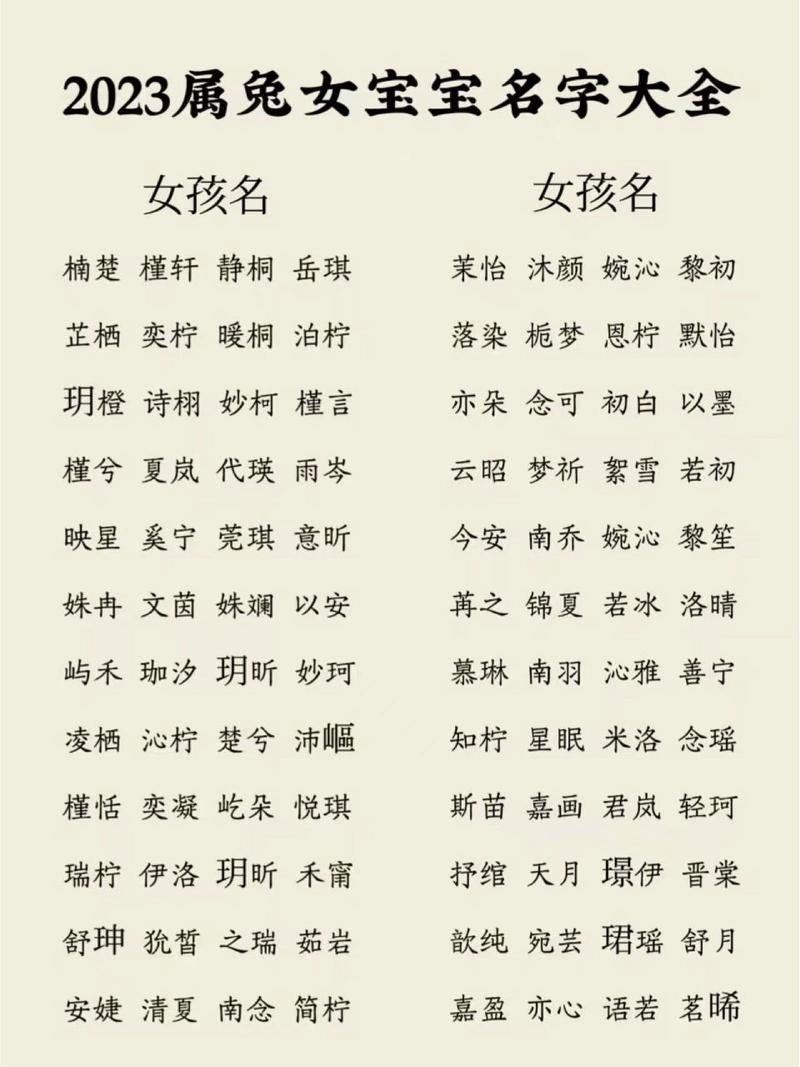 2023属兔女宝宝名字大全
女孩名
楠楚 槿轩 静桐 岳琪
芷栖 奕柠 暖桐 泊柠
玥橙 诗栩 妙柯 槿言
槿兮 夏岚 代瑛 雨岑
映星 奚宁 莞琪 意昕
姝冉 文茵 姝斓 以安
屿禾 珈汐 玥昕 妙珂
凌栖 沁柠 楚兮 沛嶇
槿恬 奕凝 屹朵 悦琪
瑞柠 伊洛 玥昕 禾甯
舒珅 狁皙 之瑞 茹岩
安婕 清夏 南念 简柠
女孩名
茉怡 沐颜 婉沁 黎初
落染 栀梦 恩柠 默怡
亦朵 念可 初白 以墨
云昭 梦祈 絮雪 若初
今安 南乔 婉沁 黎笙
苒之 锦夏 若冰 洛晴
慕琳 南羽 沁雅 善宁
知柠 星眠 米洛 念瑶
斯苗 嘉画 君岚 轻珂
抒绾 天月 璟伊 晋棠
歆纯 宛芸 珺瑶 舒月
嘉盈 亦心 语若 茗晞